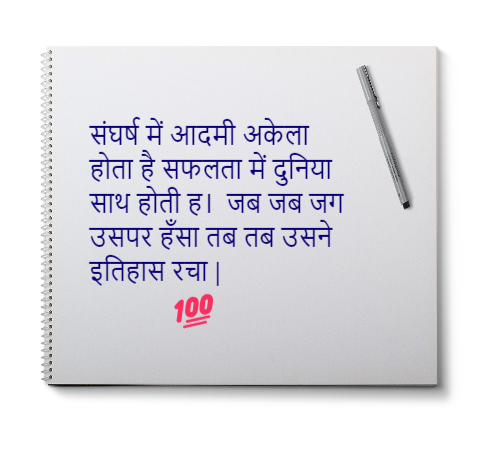 संघर्ष में आदमी अकेला
होता है सफलता में दुनिया
साथ होती ह।  जब जब जग
उसपर हँसा तब तब उसने
इतिहास रचा |
💯